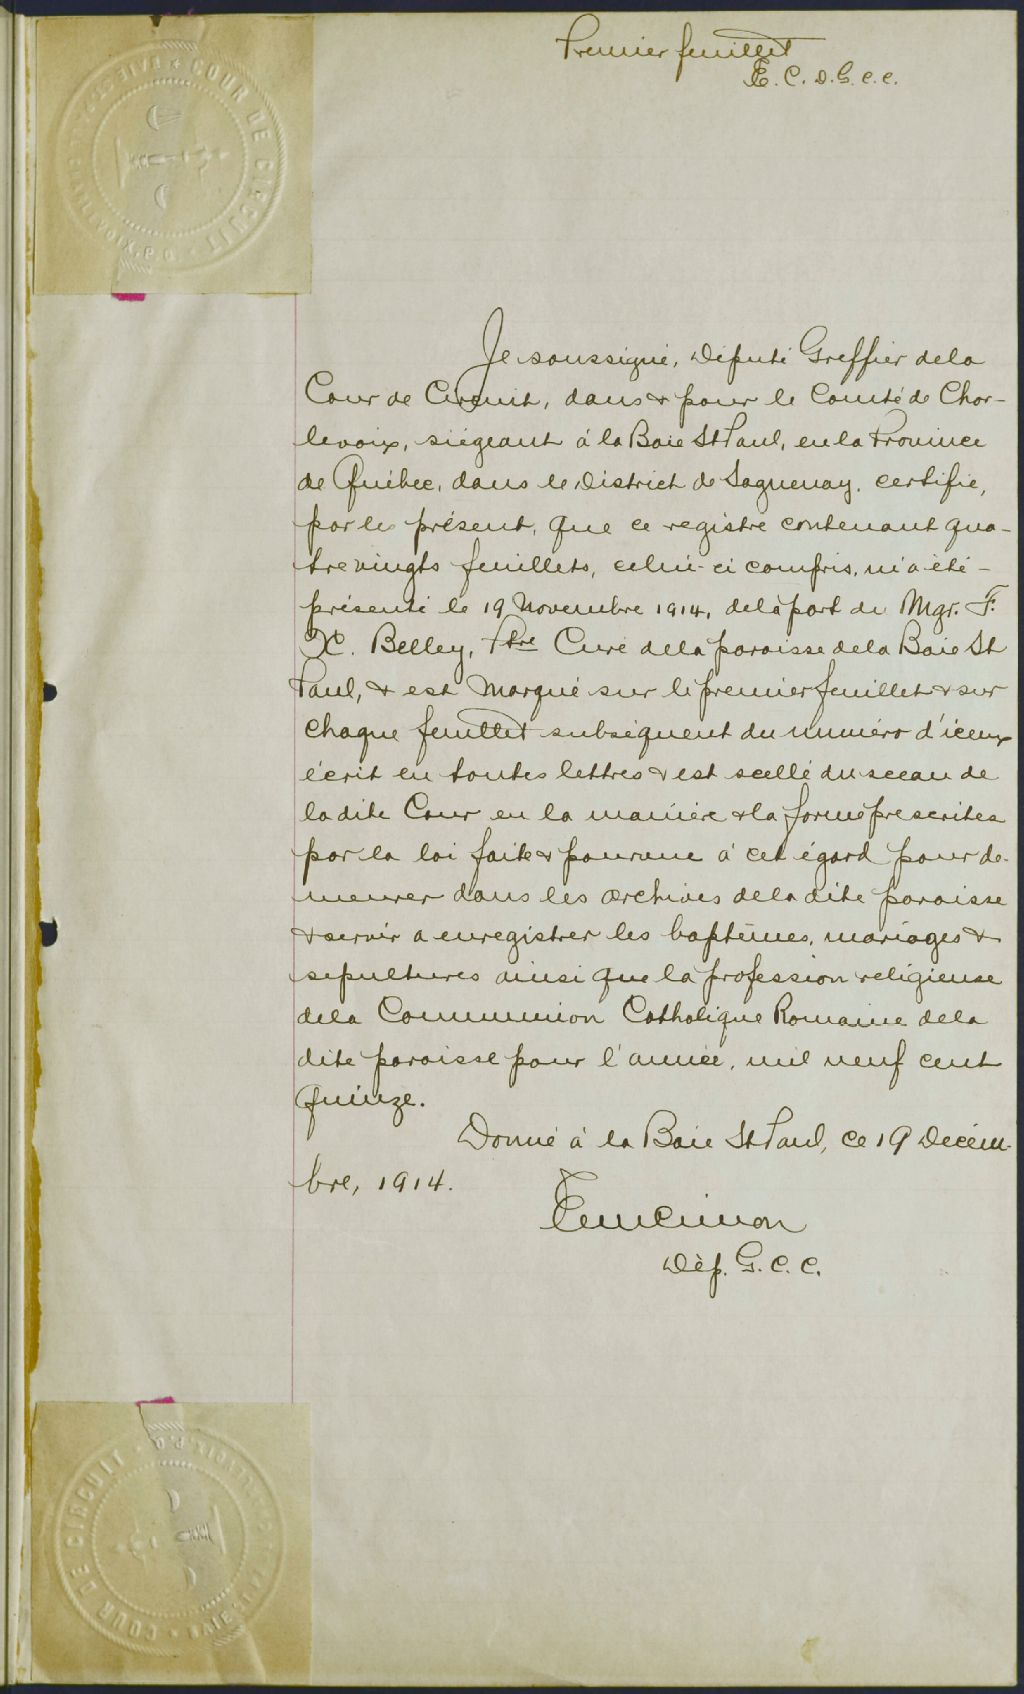 Premier feuillet
E. C. D. G. C. C.
COUR DE CIRCUIT
Je soussigné, Député Greffier de la
Cour de Circuit, dans & pour le Comté de Char-
levoix, siégeant à la Baie St Paul, en la Province
de Québec, dans le District de Saguenay, certifie,
par les présent, que ce registre contenant qua-
tre vingts feuillets, celui-ci compris, m'a été -
présenté le 19 Novembre 1914, de la part de Mgr. F.
X. Belley, Ptre Curé de la paroisse de la Baie St
Paul, & est marqué sur le premier feuillet & sur
chaque feuillet subséquent du numéro d'iceux
écrit en toutes lettres & est scellé du sceau de
la dite Cour en la manière & la forme prescrites
par la loi faite & pourvue à cet égard pour de-
meurer dans les archives de la dite paroisse
& servir a enregistrer les baptêmes, mariages &
sépultures ainsi que la profession religieuse
de la Communion Catholique Romaine de la
dite paroisse pour l'année, mil neuf cent
Quinze.
Donné à la Baie St Paul, ce 19 Décem-
bre, 1914.
Dép. G. C. C.
COUR DE CIRCUIT